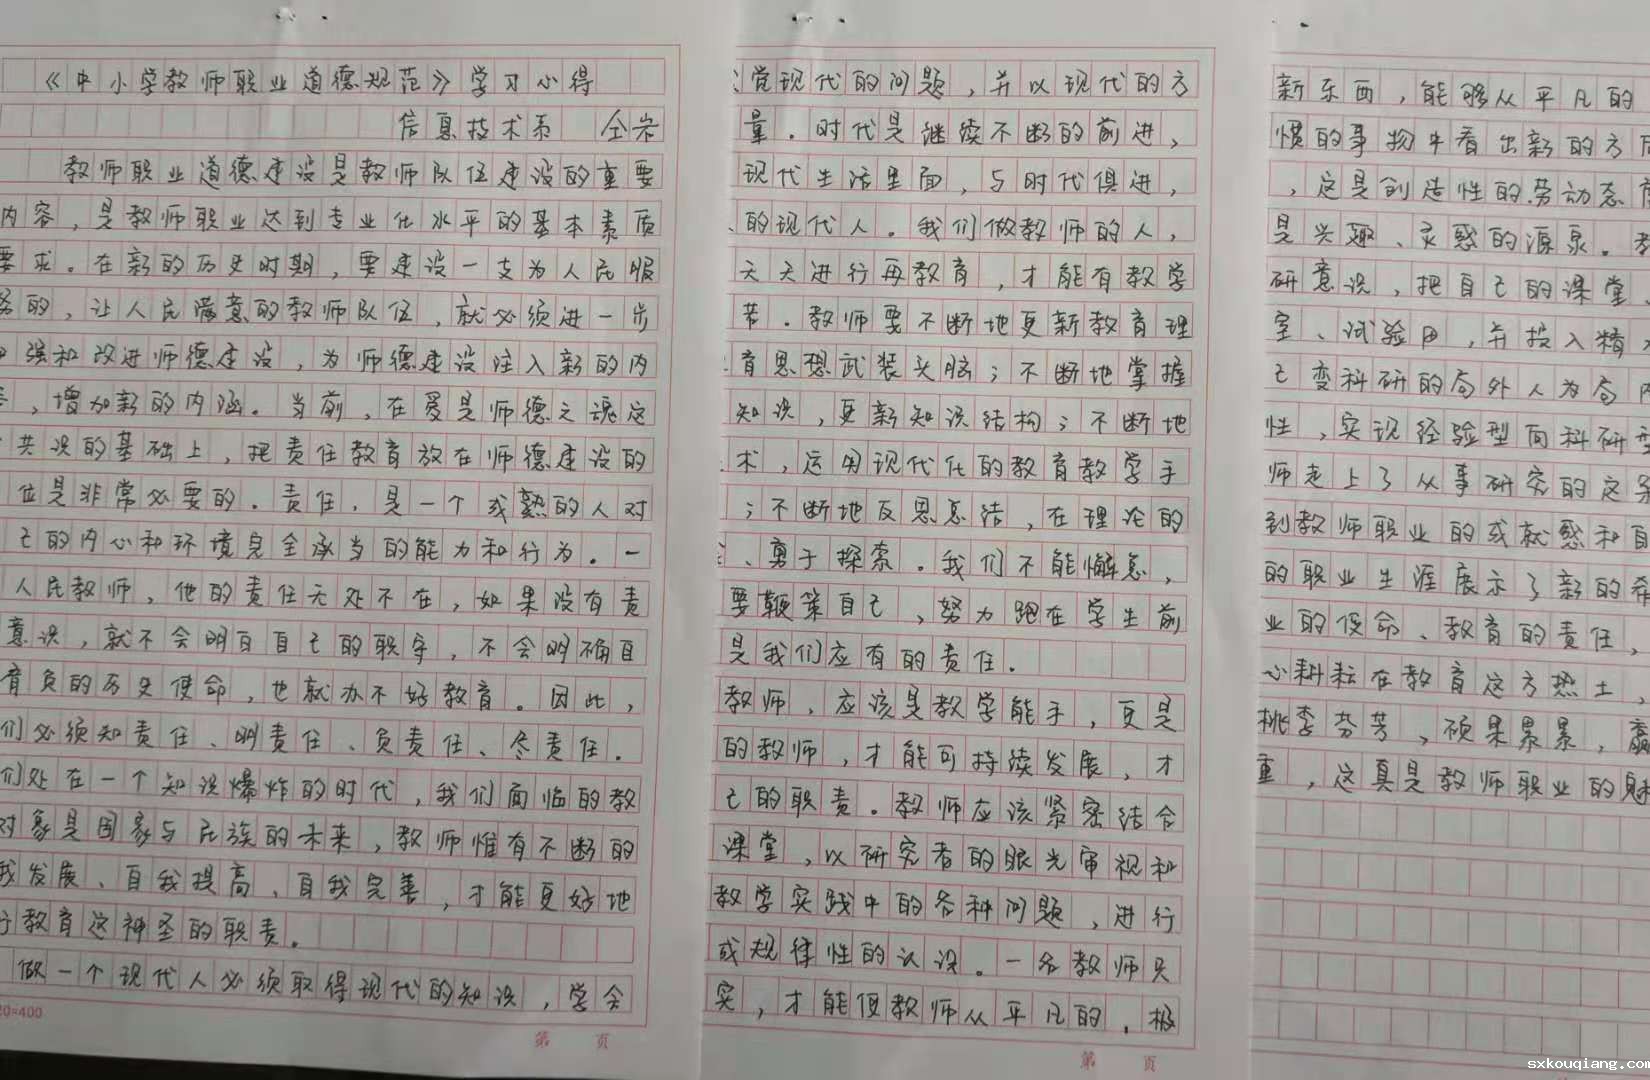 《中小学教师职业道德规范》学习心得
信息技术系 仝岩
教师职业道德建设是教师队伍建设的重要
内容，是教师职业达到专业化水平的基本素质
要求。在新的历史时期，要建设一支为人民服
务的，让人民满意的教师队伍，就必须进一步
强和改进师德建设，为师德建设注入新的内
，增加新的内涵。当前，在爱是师德之魂这
共识的基础上，把责任教育放在师德建设的
位是非常必要的。责任，是一个成熟的人对
己的内心和环境完全承当的能力和行为。一
人民教师，他的责任无处不在，如果没有责
意识，就不会明白自己的职守，不会明确自
肩负的历史使命，也就办不好教育。因此，
们必须知责任、明责任、负责任、尽责任。
们处在一个知识爆炸的时代，我们面临的教
对象是国家与民族的未来，教师惟有不断的
我发展、自我提高、自我完善，才能更好地
行教育这神圣的职责。
做一个现代人必须取得现代的知识，学会
20=400
第 页
觉现代的问题，并以现代的方
量．时代是继续不断的前进，
现代生活里面，与时代俱进，
的现代人。我们做教师的人，
天天进行再教育，才能有教学
苦．教师要不断地更新教育理
育思想武装头脑；不断地掌握
知识，更新知识结构；不断地
术，运用现代化的教育教学手
；不断地反思总结，在理论的
、勇于探索。我们不能懈怠，
要鞭策自己，努力跑在学生前
是我们应有的责任．
教师，应该是教学能手，更是
的教师，才能可持续发展，才
己的职责。教师应该紧密结合
课堂，以研究者的眼光审视和
教学实践中的各种问题，进行
成规律性的认识。一名教师只
实，才能使教师从平凡的，极
第 页
新东西，能够从平凡的
惯的事物中看出新的方
，这是创造性的劳动态度
是兴趣、灵感的源泉。教
研意识，把自己的课堂
室、试验田，并投入精
己变科研的局外人为局内
性，实现经验型向科研型
师走上了从事研究的这条
到教师职业的成就感和自
的职业生涯展示了新的希
业的使命、教育的责任，
心耕耘在教育这方热土，
桃李芬芳，硕果累累，赢
重，这真是教师职业的魅
sxkouqiang.com